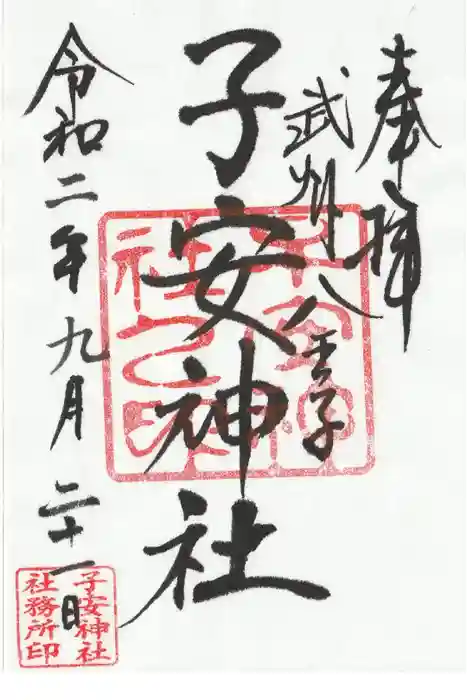 奉拝
武州八王子
子安神社
令和二年九月二十一日
子安神社之印
子安神社
社務所印